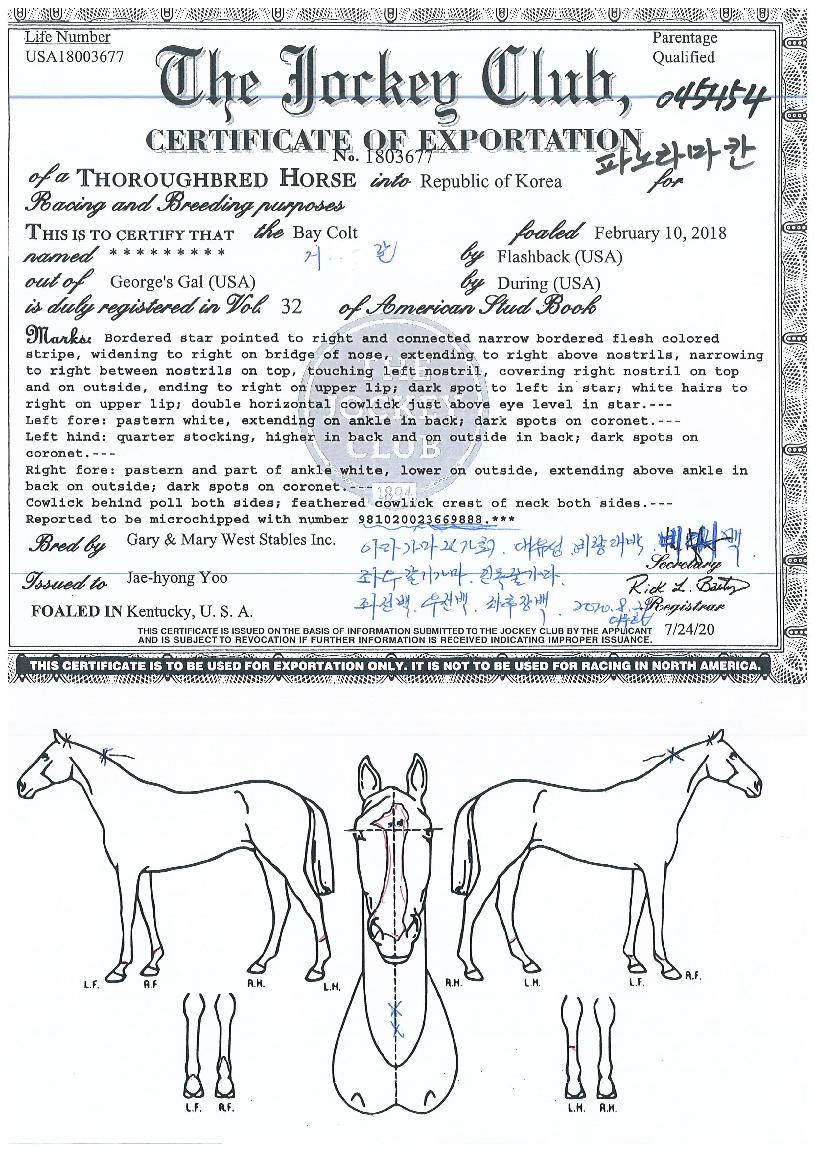 Life Number
USA18003677
Parentage
Qualified
The Jockey Club,
045454
CERTIFICATE OF EXPORTATION
No. 1803677
파노라마칸
of a THOROUGHBRED HORSE into Republic of Korea for
Racing and Breeding purposes
THIS IS TO CERTIFY THAT the Bay Colt foaled February 10, 2018
named * * * * * * * * * 거 갈 by Flashback (USA)
out of George's Gal (USA) by During (USA)
is duly registered in Vol. 32 of American Stud Book
Marks: Bordered star pointed to right and connected narrow bordered flesh colored
stripe, widening to right on bridge of nose, extending to right above nostrils, narrowing
to right between nostrils on top, touching left nostril, covering right nostril on top
and on outside, ending to right on upper lip; dark spot to left in star; white hairs to
right on upper lip; double horizontal cowlick just above eye level in star.---
Left fore: pastern white, extending on ankle in back; dark spots on coronet.---
Left hind: quarter stocking, higher in back and on outside in back; dark spots on
coronet.---
Right fore: pastern and part of ankle white, lower on outside, extending above ankle in
back on outside; dark spots on coronet.---
Cowlick behind poll both sides; feathered cowlick crest of neck both sides.---
Reported to be microchipped with number 981020023669888.***
THE
JOCKEY
CLUB
1894
Bred by Gary & Mary West Stables Inc.
Secretary
Issued to Jae-hyong Yoo
좌수갈기가마.
Rick L. Bailey
Registrar
FOALED IN Kentucky, U. S. A.
좌전백. 우전백. 좌후장백. 2020.8.
THIS CERTIFICATE IS ISSUED ON THE BASIS OF INFORMATION SUBMITTED TO THE JOCKEY CLUB BY THE APPLICANT
AND IS SUBJECT TO REVOCATION IF FURTHER INFORMATION IS RECEIVED INDICATING IMPROPER ISSUANCE.
7/24/20
THIS CERTIFICATE IS TO BE USED FOR EXPORTATION ONLY. IT IS NOT TO BE USED FOR RACING IN NORTH AMERICA.
L.F. R.F. R.H. L.H. R.H. L.H. L.F. R.F.
L.F. R.F. L.H. R.H.